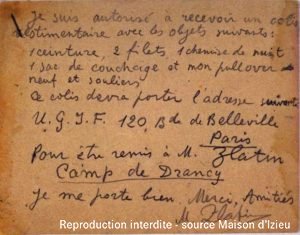 Je suis autorisé à recevoir un colis
vestimentaire avec les objets suivants:
1 ceinture, 2 filets, 1 chemise de nuit
1 sac de couchage et mon pullover
neuf et souliers
Ce colis devra porter l'adresse suivante
U.G.I.F. 120, Bd de Belleville
Paris
Pour être remis à M. Zlatin
Camp de Drancy
Je me porte bien, Merci, Amitiés
M. Zlatin
Reproduction interdite - source Maison d'Izieu